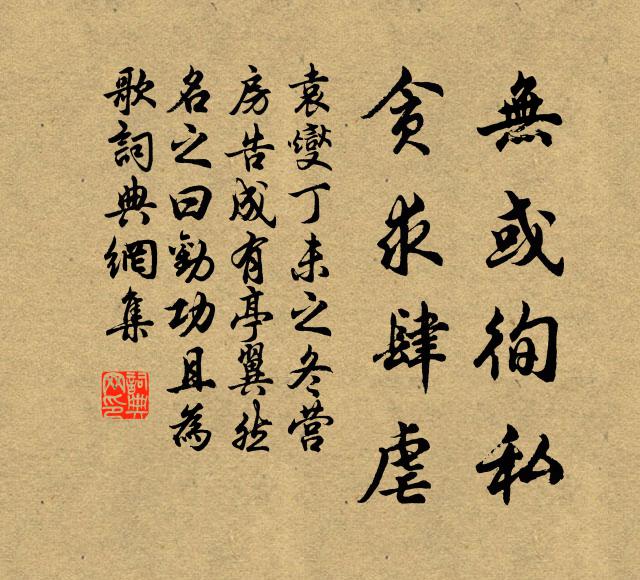 無或徇私
貪求肆虐
袁燮丁未之冬营
房告成有亭翼然
名之曰勸功且為
歌詞典網集
詞典網印